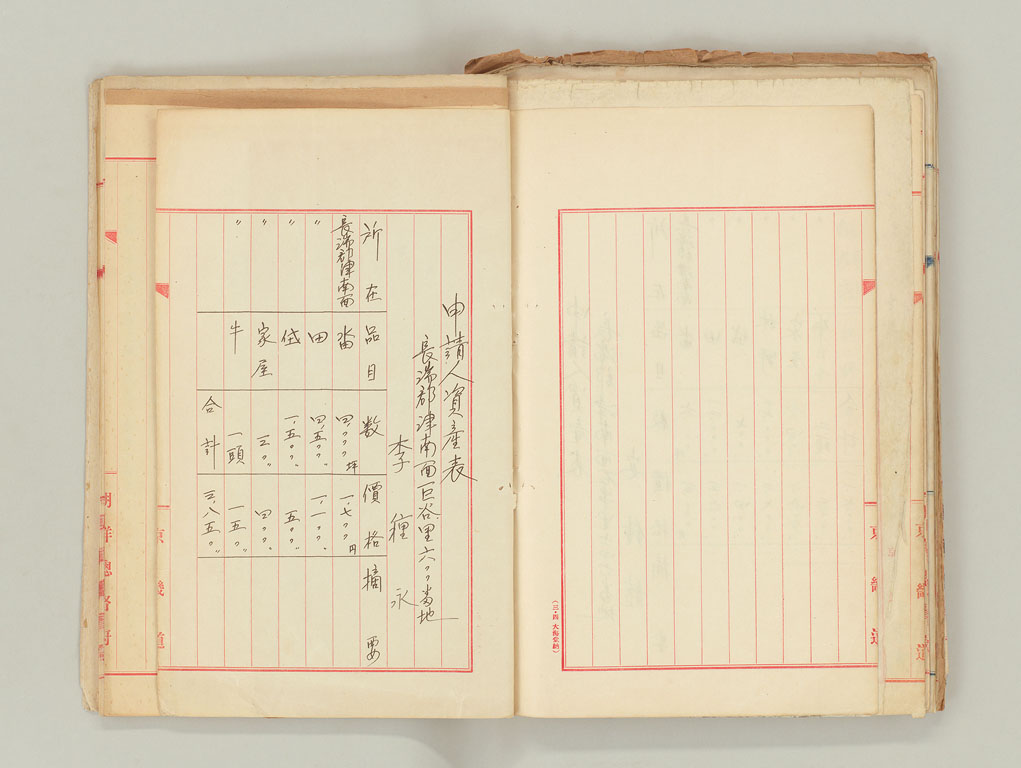 京畿道
(三・四 大海堂納)
申請人資産表
長湍郡津南面巨谷里六〇〇番地
李種永
所在 品目 数 價格 摘要
長湍郡津南面 畓 四、〇〇〇坪 一、七〇〇円
〃 田 四、五〇〇〃 一、一〇〇〃
〃 垈 一、五〇〇〃 五〇〇〃
〃 家屋 四〇〇〃
〃 牛 一頭 一五〇〃
合計 三、八五〇〃
京畿道
朝鮮總督府